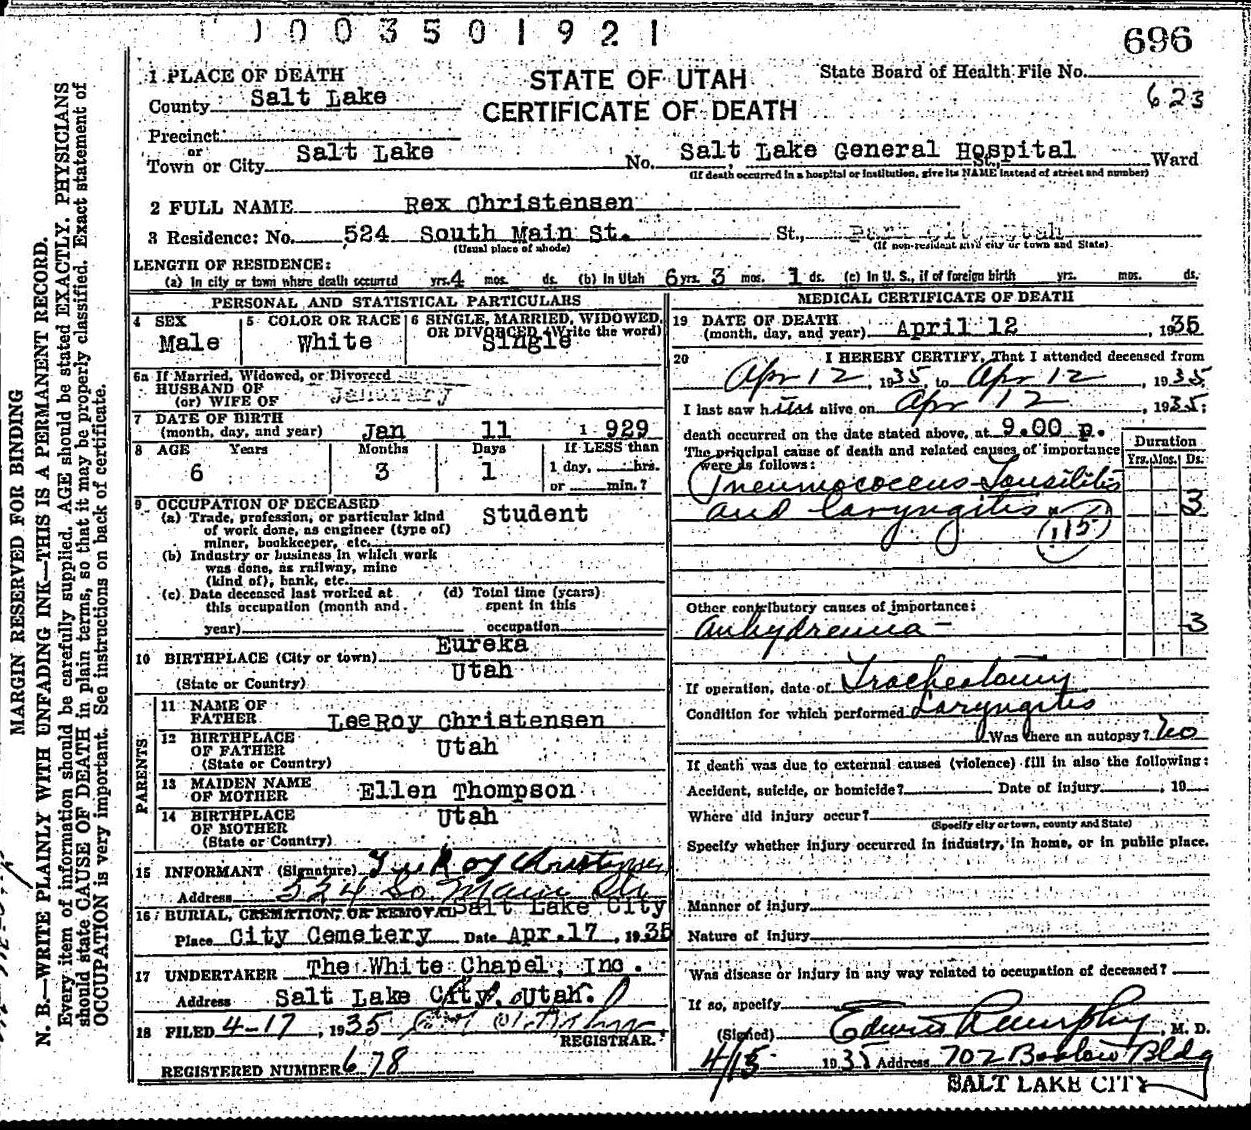 1003501921
696
1 PLACE OF DEATH
County Salt Lake
Precinct
or
Town or City Salt Lake
STATE OF UTAH
CERTIFICATE OF DEATH
State Board of Health File No.
623
No. Salt Lake General Hospital St., Ward
(If death occurred in a hospital or institution, give its NAME instead of street and number)
2 FULL NAME Rex Christensen
3 Residence: No. 524 South Main St. St., Park City Utah
(Usual place of abode) (If non-resident give city or town and State)
LENGTH OF RESIDENCE:
(a) In city or town where death occurred yrs. 4 mos. ds. (b) In Utah 6 yrs. 3 mos. 1 ds. (c) In U. S., if of foreign birth yrs. mos. ds.
PERSONAL AND STATISTICAL PARTICULARS
4 SEX Male
5 COLOR OR RACE White
6 SINGLE, MARRIED, WIDOWED, OR DIVORCED (Write the word) Single
6a If Married, Widowed, or Divorced
HUSBAND OF
(or) WIFE OF
7 DATE OF BIRTH
(month, day, and year) Jan 11 1929
8 AGE Years Months Days If LESS than
6 3 1 1 day, hrs.
or min.?
9 OCCUPATION OF DECEASED
(a) Trade, profession, or particular kind of work done, as engineer (type of) miner, bookkeeper, etc. Student
(b) Industry or business in which work was done, as railway, mine (kind of), bank, etc.
(c) Date deceased last worked at this occupation (month and year)
(d) Total time (years) spent in this occupation
10 BIRTHPLACE (City or town) Eureka
(State or Country) Utah
PARENTS
11 NAME OF FATHER LeeRoy Christensen
12 BIRTHPLACE OF FATHER Utah
(State or Country)
13 MAIDEN NAME OF MOTHER Ellen Thompson
14 BIRTHPLACE OF MOTHER Utah
(State or Country)
15 INFORMANT (Signature) LeeRoy Christensen
Address 524 So. Main St.
16 BURIAL, CREMATION, OR REMOVAL Salt Lake City
Place City Cemetery Date Apr.17, 1935
17 UNDERTAKER The White Chapel, Inc.
Address Salt Lake City, Utah.
18 FILED 4-17, 1935
REGISTRAR.
REGISTERED NUMBER 678
MEDICAL CERTIFICATE OF DEATH
19 DATE OF DEATH
(month, day, and year) April 12, 1935
20 I HEREBY CERTIFY, That I attended deceased from
Apr 12, 1935, to Apr 12, 1935
I last saw him alive on Apr 12, 1935;
death occurred on the date stated above, at 9.00 p.
The principal cause of death and related causes of importance were as follows:
Duration
Yrs. Mos. Ds.
Pneumococcus Tonsilitis
and laryngitis 3
115
Other contributory causes of importance:
Anhydremia - 3
If operation, date of Tracheotomy
Condition for which performed Laryngitis
Was there an autopsy? No
If death was due to external causes (violence) fill in also the following:
Accident, suicide, or homicide? Date of injury , 19
Where did injury occur?
(Specify city or town, county and State)
Specify whether injury occurred in industry, in home, or in public place.
Manner of injury
Nature of injury
Was disease or injury in any way related to occupation of deceased?
If so, specify
(Signed) Edwin Murphy, M. D.
4/15 1935 Address 702 Boston Bldg
SALT LAKE CITY
MARGIN RESERVED FOR BINDING
N. B.—WRITE PLAINLY WITH UNFADING INK—THIS IS A PERMANENT RECORD.
Every item of information should be carefully supplied. AGE should be stated EXACTLY. PHYSICIANS
should state CAUSE OF DEATH in plain terms, so that it may be properly classified. Exact statement of
OCCUPATION is very important. See instructions on back of certificate.